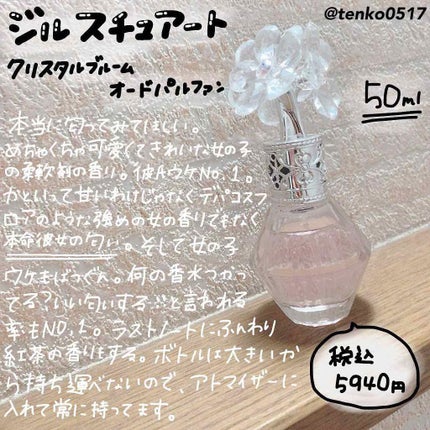 @tenko0517
ジル スチュアート
クリスタルブルーム
オードパルファン
50ml
本当に匂ってみてほしい。
めちゃくちゃ可愛くてきれいな女の子
の柔軟剤の香り。彼ウケNo.1。
かといって甘いわけじゃなくデパコスフ
ロアのような強めの女の香りでもなく
本命彼女の匂い。そして女の子
ウケもばつぐん。何の香水つかっ
てる?いい匂いする…と言われる
率もNO.1。ラストノートにふんわり
紅茶の香りもする。ボトルは大きいか
ら持ち運べないので、アトマイザーに
入れて常に持ってます。
税込
5940円